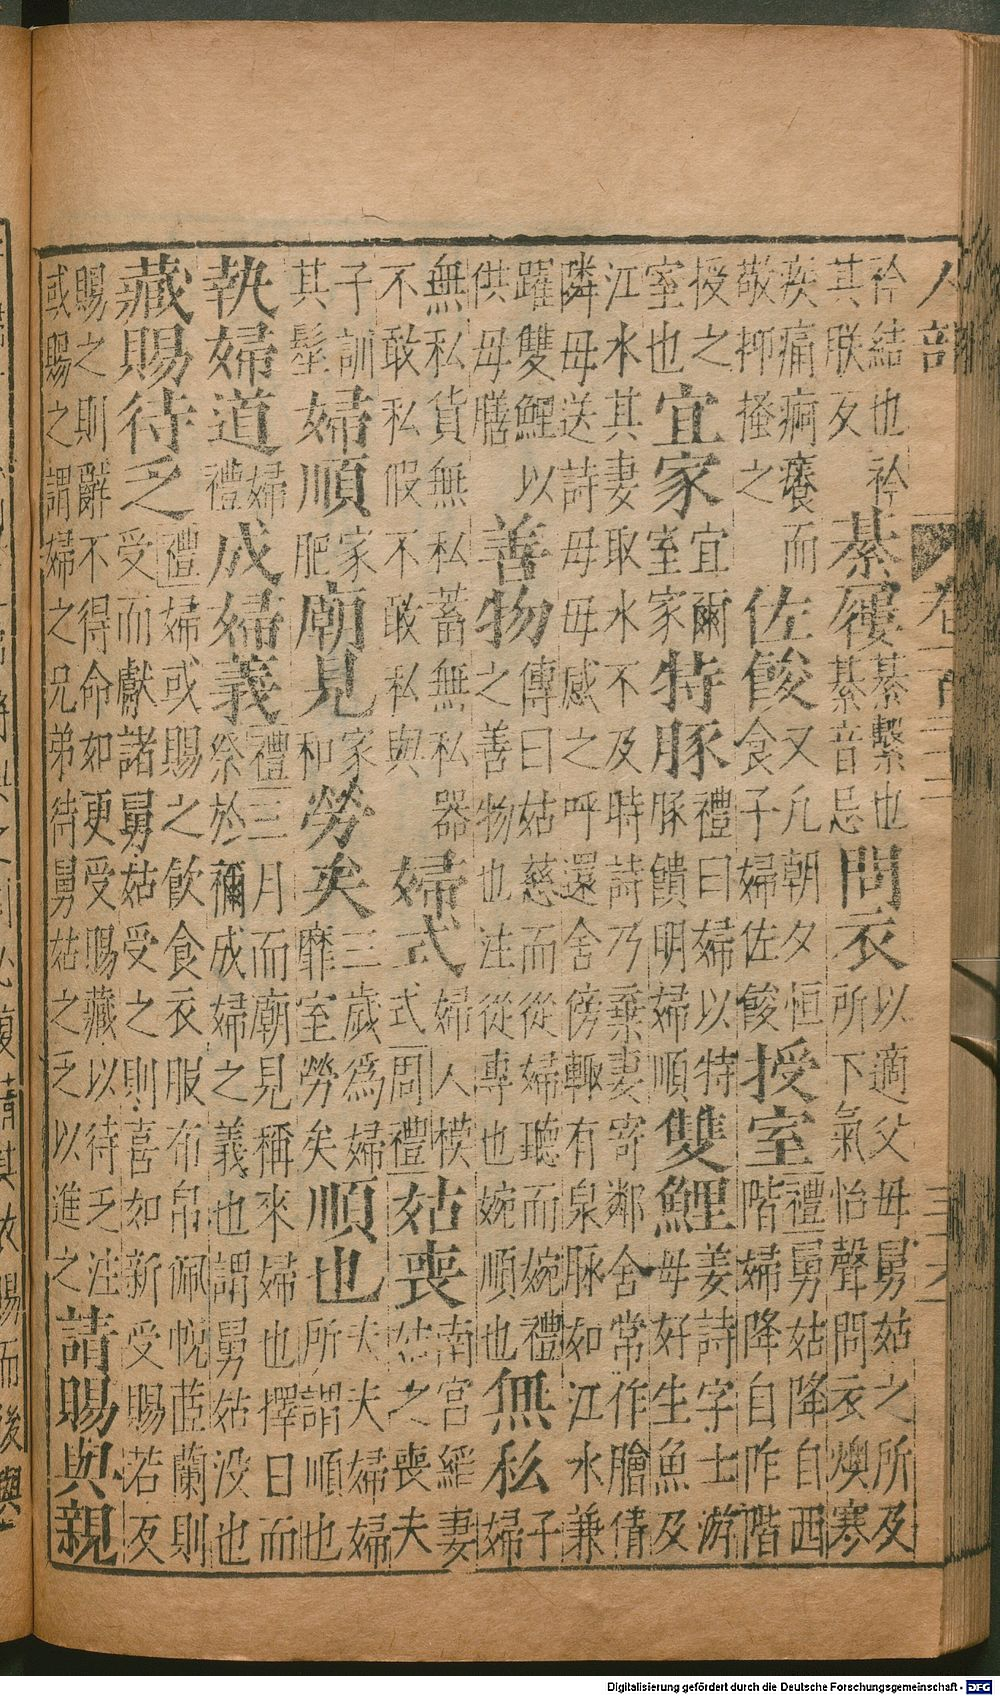 人部
衿結也衿
其朕反
綦屨
綦繫也
綦音忌
問衣
以適父母舅姑之所及
所下氣怡聲問衣燠寒
疾痛疴癢而
敬抑搔之
佐餕
又凡朝夕恒
食子婦佐餕
授室
禮舅姑降自西
階婦降自阼階
授之
室也
宜家
宜爾
室家
特豚
禮曰婦以特
豚饋明婦順
雙鯉
姜詩字士游
母好生魚及
江水其妻取水不及時詩乃棄妻寄鄰舍常作膾倩
隣母送詩母母感之呼還舍傍輙有泉脉如江水兼
躍雙鯉以
供母膳
善物
傳曰姑慈而從婦聽而婉禮
之善物也注從專也婉順也
無私
子
婦
無私貨無私蓄無私器
不敢私假不敢私與
婦式
婦人模
式周禮
姑喪
南宮縚妻
姑之喪夫
子訓
其髽
婦順
家
肥
廟見
家
和
勞矣
三歲為婦
靡室勞矣
順也
夫夫婦婦
所謂順也
執婦道
婦
禮
成婦義
禮三月而廟見稱來婦也擇日而
祭於禰成婦之義也謂舅姑沒也
藏賜待乏
禮婦或賜之飲食衣服布帛佩帨茝蘭則
受而獻諸舅姑受之則喜如新受賜若反
賜之則辭不得命如更受賜藏以待乏注
或賜之謂婦之兄弟待舅姑之乏以進之
請賜與親
復請其故賜而後與
Digitalisierung gefördert durch die Deutsche Forschungsgemeinschaft - DFG